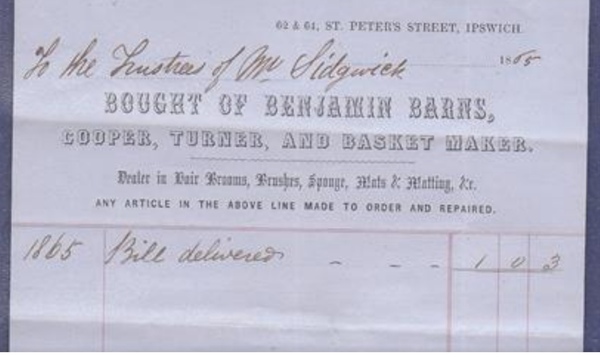 62 & 64, ST. PETER'S STREET, IPSWICH.
To the Trustees of Mr Sidgwick 1865
BOUGHT OF BENJAMIN BARNS,
COOPER, TURNER, AND BASKET MAKER.
Dealer in Hair Brooms, Brushes, Sponge, Mats & Matting, &c.
ANY ARTICLE IN THE ABOVE LINE MADE TO ORDER AND REPAIRED.
1865 Bill delivered - - - 1 0 3